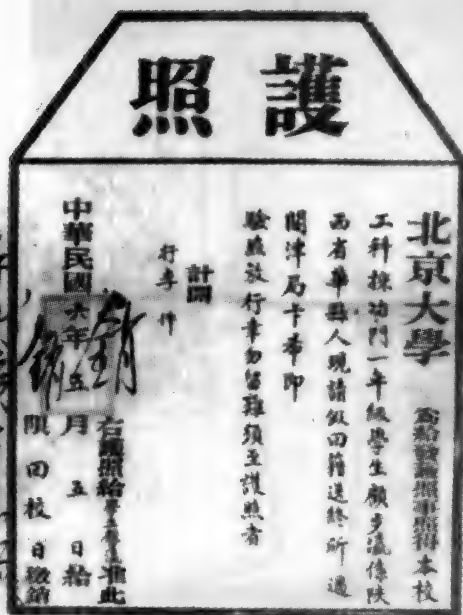 護照
北京大學 為給發護照事照得本校
工科採功門一年級學生顧步瀛係陝
西省華縣人現請假回籍送終所過
關津局卡希即
驗照放行幸勿留難須至護照者
計開
行李 件
右護照給學生 准此
中華民國六年五月五日給
限 回校日繳銷
銷